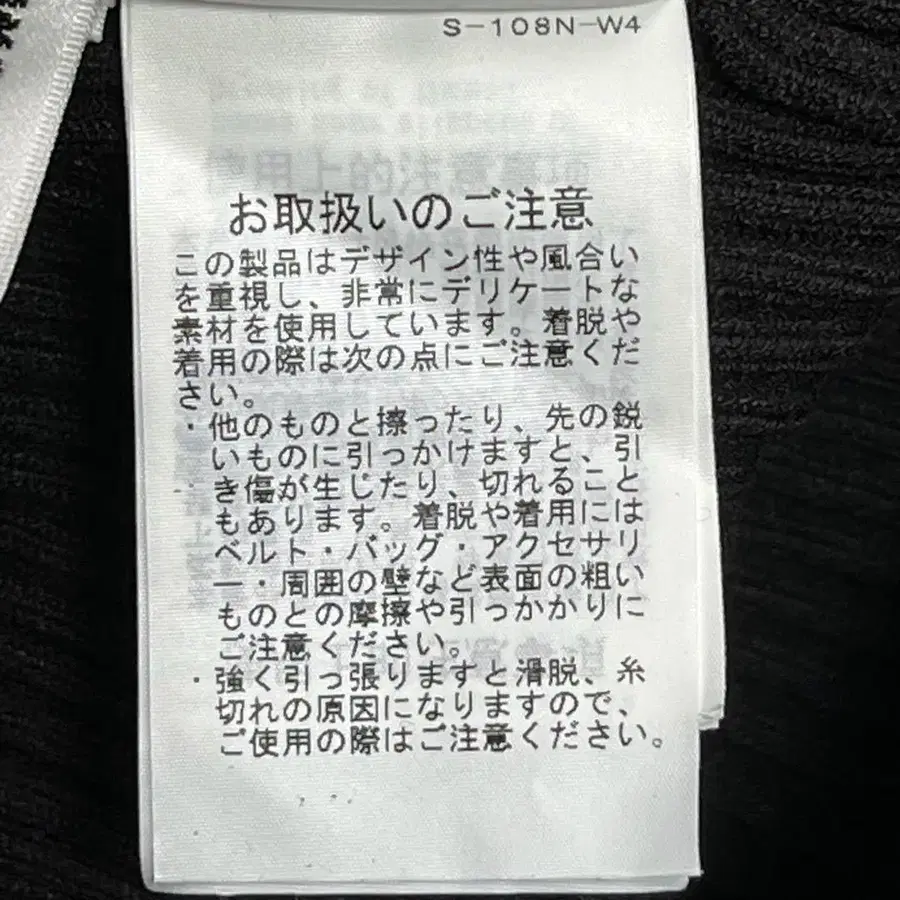 S-108N-W4
お取扱いのご注意
この製品はデザイン性や風合い
を重視し、非常にデリケートな
素材を使用しています。着脱や
着用の際は次の点にご注意くだ
さい。
・他のものと擦ったり、先の鋭
いものに引っかけますと、引
き傷が生じたり、切れること
もあります。着脱や着用には
ベルト・バッグ・アクセサリ
ー・周囲の壁など表面の粗い
ものとの摩擦や引っかかりに
ご注意ください。
・強く引っ張りますと滑脱、糸
切れの原因になりますので、
ご使用の際はご注意ください。